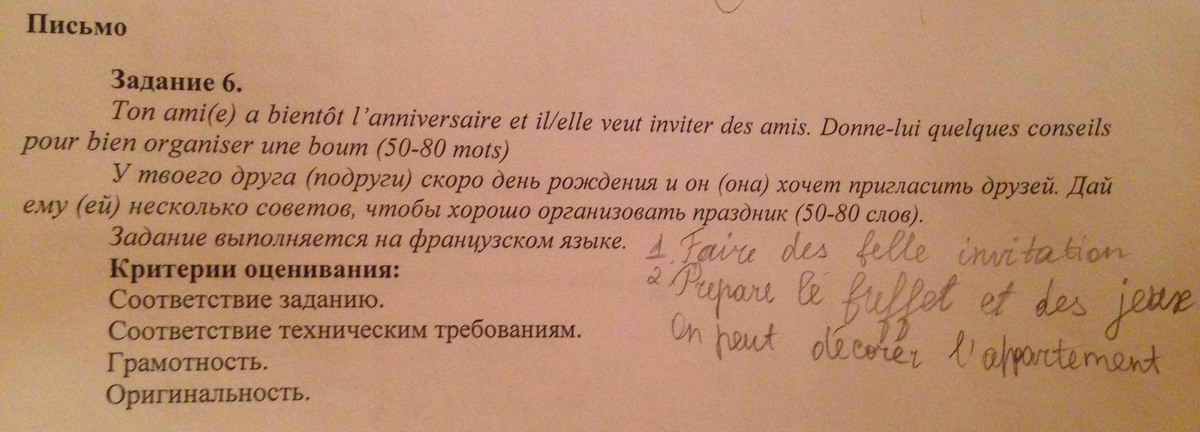 Письмо
Задание 6.
Ton ami(e) a bientôt l'anniversaire et il/elle veut inviter des amis. Donne-lui quelques conseils
pour bien organiser une boum (50-80 mots)
У твоего друга (подруги) скоро день рождения и он (она) хочет пригласить друзей. Дай
ему (ей) несколько советов, чтобы хорошо организовать праздник (50-80 слов).
Задание выполняется на французском языке.
1. Faire des belle invitation
Критерии оценивания:
2 Prepare le buffet et des jeux
Соответствие заданию.
Соответствие техническим требованиям.
On peut décorer l'appartement
Грамотность.
Оригинальность.